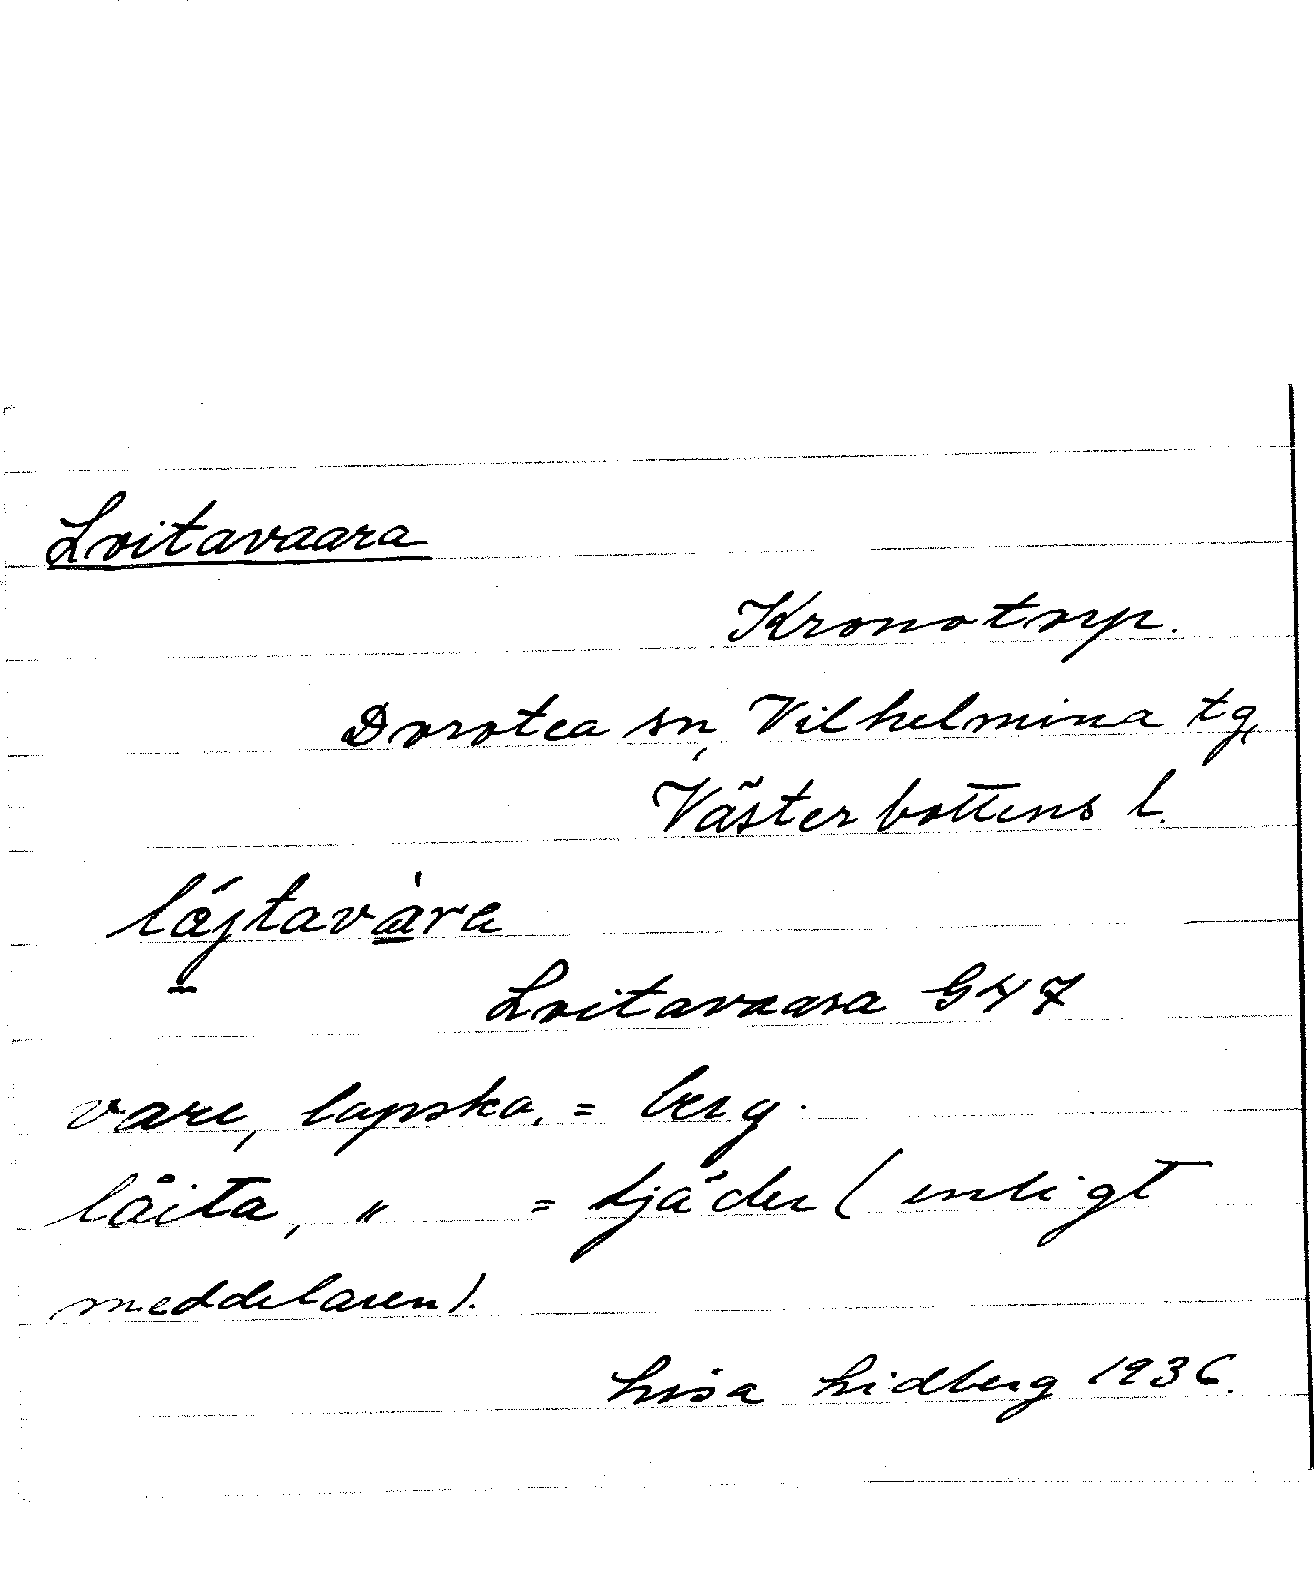 Loitavaara
Kronotorp.
Dorotea sn, Vilhelmina tg,
Västerbottens l.
Loitavaara G47
vare, lapska, = berg.
låita, " = tjäder (enligt
meddelaren).
Lisa Lidberg 1936.